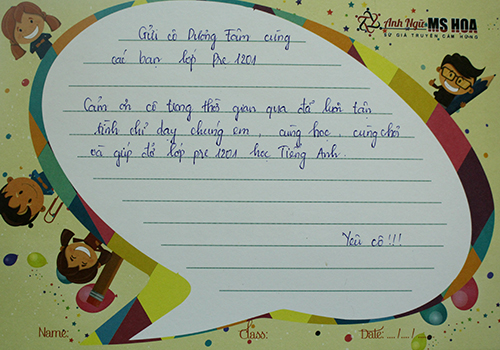 Anh Ngữ MS HOA
SỨ GIẢ TRUYỀN CẢM HỨNG
Gửi cô Dương Tâm cùng
các bạn lớp Pre 1201
Cảm ơn cô trong thời gian qua đã luôn tận
tình chỉ dạy chúng em, cùng học, cùng chơi
và giúp đỡ lớp pre 1201 học Tiếng Anh.
Yêu cô!!!
Name:
Class:
Date: ..../..../....